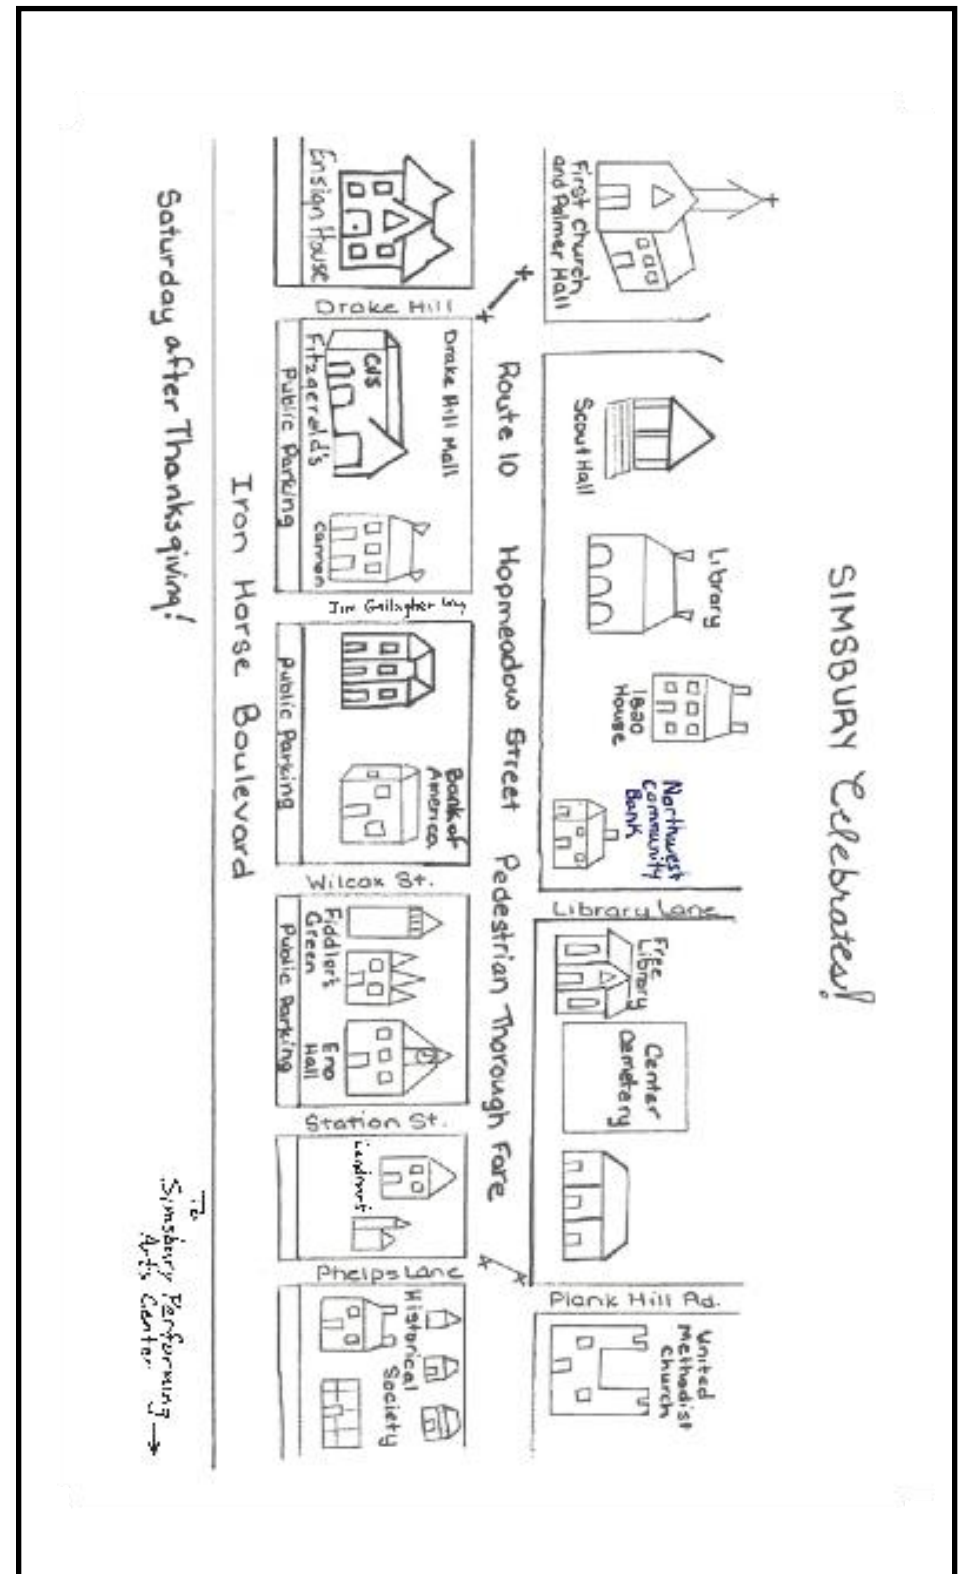 SIMSBURY Celebrates!
First Church
and Palmer Hall
Scout Hall
Library
1820
House
Northwest
Community
Bank
Library Lane
Free
Library
Center
Cemetery
Plank Hill Rd.
United
Methodist
Church
Route 10 Hopmeadow Street Pedestrian Thorough Fare
Ensign House
Drake Hill
Drake Hill Mall
CVS
Fitzgerald's
Cannon
Public Parking
Jim Gallagher Way
Bank of
America
Public Parking
Wilcox St.
Fiddler's
Green
Eno
Hall
Public Parking
Station St.
Landmark
Phelps Lane
Historical
Society
Iron Horse Boulevard
Saturday after Thanksgiving!
To
Simsbury Performing
Arts Center →